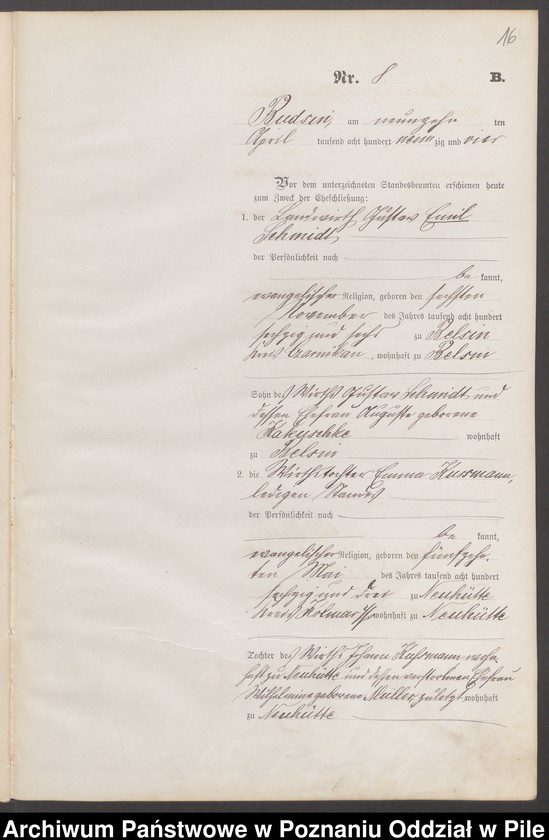 16
Nr. 8 B.
Budsin, am neunzehn ten
April tausend acht hundert neunzig und vier
Vor dem unterzeichneten Standesbeamten erschienen heute
zum Zweck der Eheschließung:
1. der Landwirth Gustav Emil
Schmidt,
der Persönlichkeit nach
be kannt,
evangelischer Religion, geboren den sechsten
November des Jahres tausend acht hundert
sechzig und sechs zu Belsin
Kreis Czarnikau, wohnhaft zu Belsin
Sohn des Wirths Gustav Schmidt und
dessen Ehefrau Auguste geborene
wohnhaft
zu Belsin
2. die Wirthstochter Emma Kussmann,
ledigen Standes
der Persönlichkeit nach
be kannt,
evangelischer Religion, geboren den fünfzehn-
ten Mai des Jahres tausend acht hundert
sechzig und drei zu Neuhütte
Kreis Kolmar wohnhaft zu Neuhütte
Tochter des Wirths Johann Kussmann wohn-
haft zu Neuhütte und dessen verstorbenen Ehefrau
Wilhelmine geborene Müller, zuletzt wohnhaft
zu Neuhütte
Archiwum Państwowe w Poznaniu Oddział w Pile